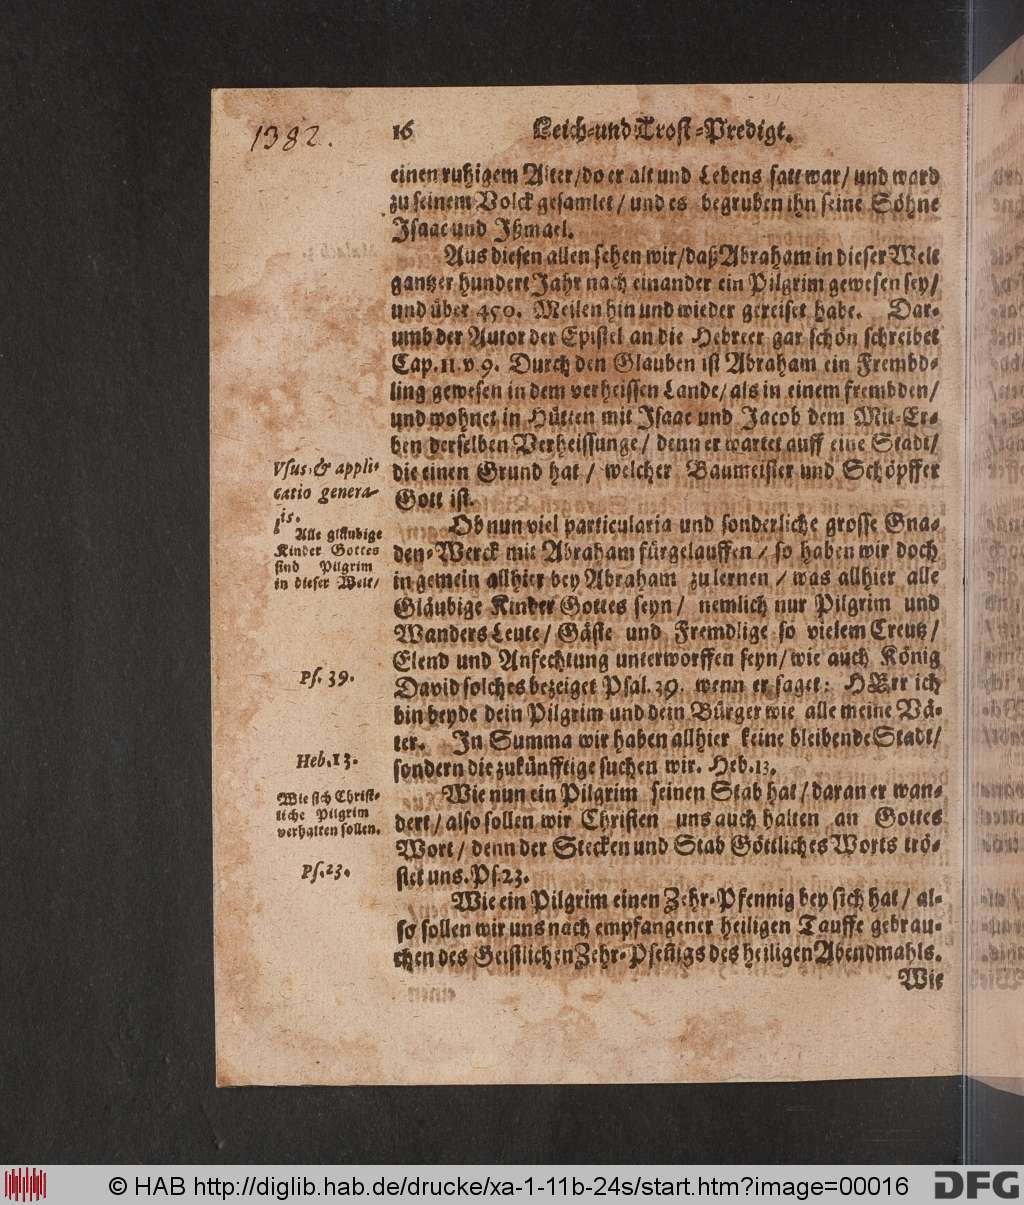 1382.
16 Leich-und Trost-Predigt.
einen ruhigem Alter/do er alt und Lebens satt war/ und ward
zu seinem Volck gesamlet/ und es begruben ihn seine Söhne
Isaac und Ißmael.
Aus diesen allen sehen wir/daß Abraham in dieser Welt
gantzer hundert Jahr nach einander ein Pilgrim gewesen sey/
und über 450. Meilen hin und wieder gereiset habe. Dar-
umb der Autor der Epistel an die Hebreer gar schön schreibet
Cap. 11. v. 9. Durch den Glauben ist Abraham ein Frembd-
ling gewesen in dem verheissen Lande/ als in einem frembden/
und wohnet in Hütten mit Isaac und Jacob dem Mit-Er-
ben derselben Verheissunge/ denn er wartet auff eine Stadt/
die einen Grund hat/ welcher Baumeister und Schöpffer
Gott ist.
Vsus, & appli-
catio genera-
lis.
Alle gläubige
Kinder Gottes
sind Pilgrim
in dieser Welt/
Ob nun viel particularia und sonderliche grosse Gna-
den-Werck mit Abraham fürgelauffen/ so haben wir doch
in gemein allhier bey Abraham zu lernen/ was allhier alle
Gläubige Kinder Gottes seyn/ nemlich nur Pilgrim und
Wanders Leute/ Gäste und Fremdlige so vielem Creutz/
Elend und Anfechtung unterworffen seyn/ wie auch König
Ps. 39.
David solches bezeiget Psal. 39. wenn er saget: HErr ich
bin beyde dein Pilgrim und dein Bürger wie alle meine Vä-
ter. In Summa wir haben allhier keine bleibende Stadt/
Heb. 13.
sondern die zukünfftige suchen wir. Heb. 13.
Wie sich Christ-
liche Pilgrim
verhalten sollen.
Wie nun ein Pilgrim seinen Stab hat/ daran er wan-
dert/ also sollen wir Christen uns auch halten an Gottes
Wort/ denn der Stecken und Stab Göttliches Worts trö-
Ps. 23.
stet uns. Ps. 23.
Wie ein Pilgrim einen Zehr-Pfennig bey sich hat/ al-
so sollen wir uns nach empfangener heiligen Tauffe gebrau-
chen des Geistlichen Zehr-Pfeñigs des heiligen Abendmahls.
Wie
© HAB http://diglib.hab.de/drucke/xa-1-11b-24s/start.htm?image=00016
DFG